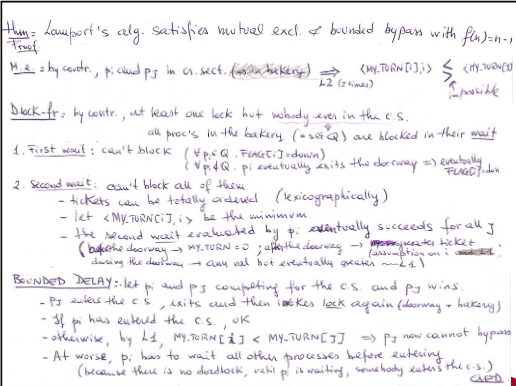 Thm: Lamport's alg. satisfies mutual excl. & bounded bypass with f(n)=n-1
Proof
M.e.: by contr., pi and pj in cr. sect. ⟹ L2 (2 times) <MY_TURN[i],i> ≶ <MY_TURN[j]
impossible
Dlock-fr: by contr., at least one lock but nobody ever in the c.s.
all proc's in the bakery (= set Q) are blocked in their wait
1. First wait: can't block (∀ pi∈Q. FLAG[i]=down)
(∀ pi∉Q. pi eventually exits the doorway ⟹ eventually FLAG[i]=down
2. Second wait: can't block all of them
- tickets can be totally ordered (lexicographically)
- let <MY_TURN[i],i> be the minimum
- the second wait evaluated by pi eventually succeeds for all j
(before the doorway → MY_TURN=0 ; after the doorway → greater ticket
during the doorway → any val but eventually greater L1) (assumption on i
BOUNDED DELAY: let pi and pj competing for the c.s. and pj wins.
- Pj enters the c.s., exits and then lock again (doorway + bakery)
- If pi has entered the c.s., OK
- otherwise, by L1, MY_TURN[i] < MY_TURN[j] ⟹ pj now cannot bypass
- At worse, pi has to wait all other processes before entering
(because there is no deadlock, until pi is waiting, somebody enters the c.s.)
QED